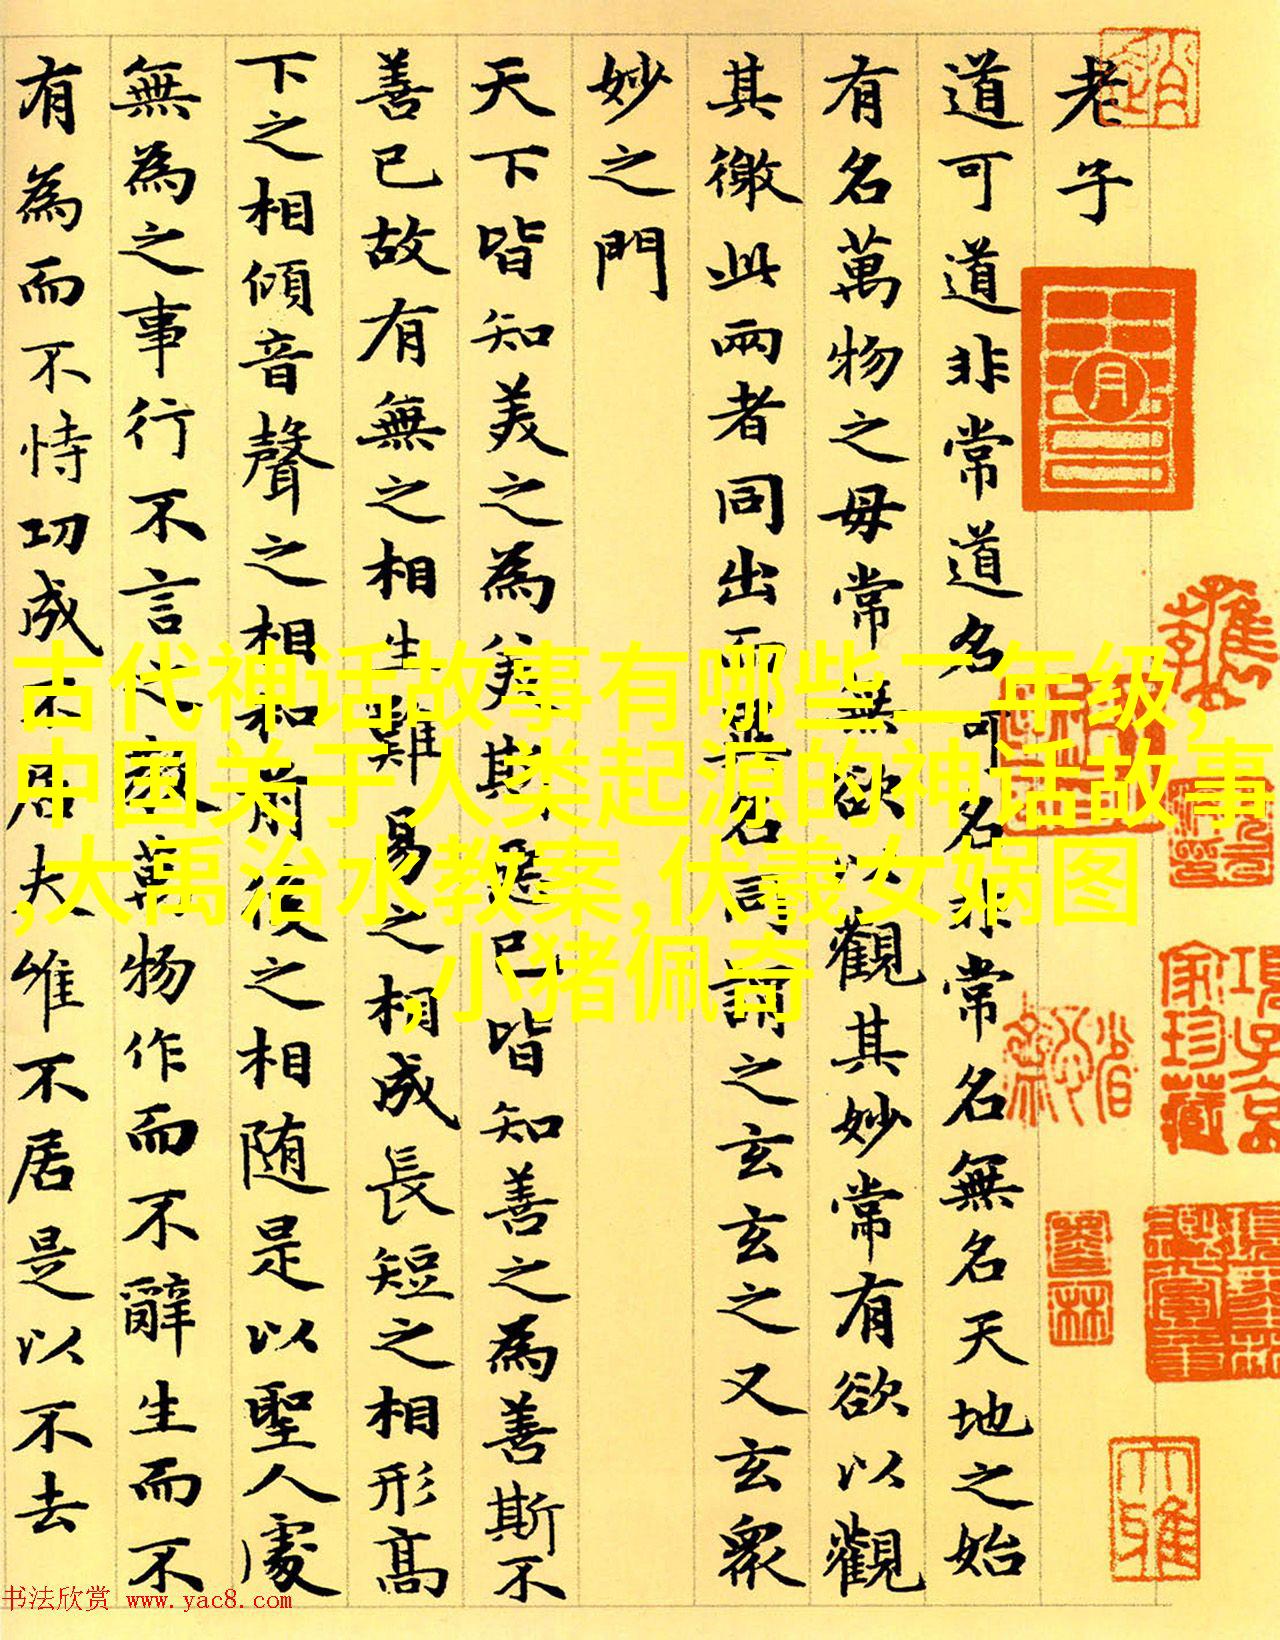 老子
道可道非常道名可名非常名無名天地之始
有名萬物之母常無欲以觀其妙常有欲以觀
其徼此兩者同出而異名同謂之玄玄之又玄衆
妙之門
天下皆知美之為美斯惡已皆知善之為善斯不
善已故有無之相生難易之相成長短之相形髙
下之相傾音聲之相和前後之相随是以聖人處
無為之事行不言之教萬物作而不辭生而不
有為而不恃功成不居夫唯不居是以不去
古代神话故事有哪些二年级,
中国关于人类起源的神话故事
,大禹治水教案,伏羲女娲图
,小猪佩奇
項子京家珍藏
书法欣赏 www.yac8.com